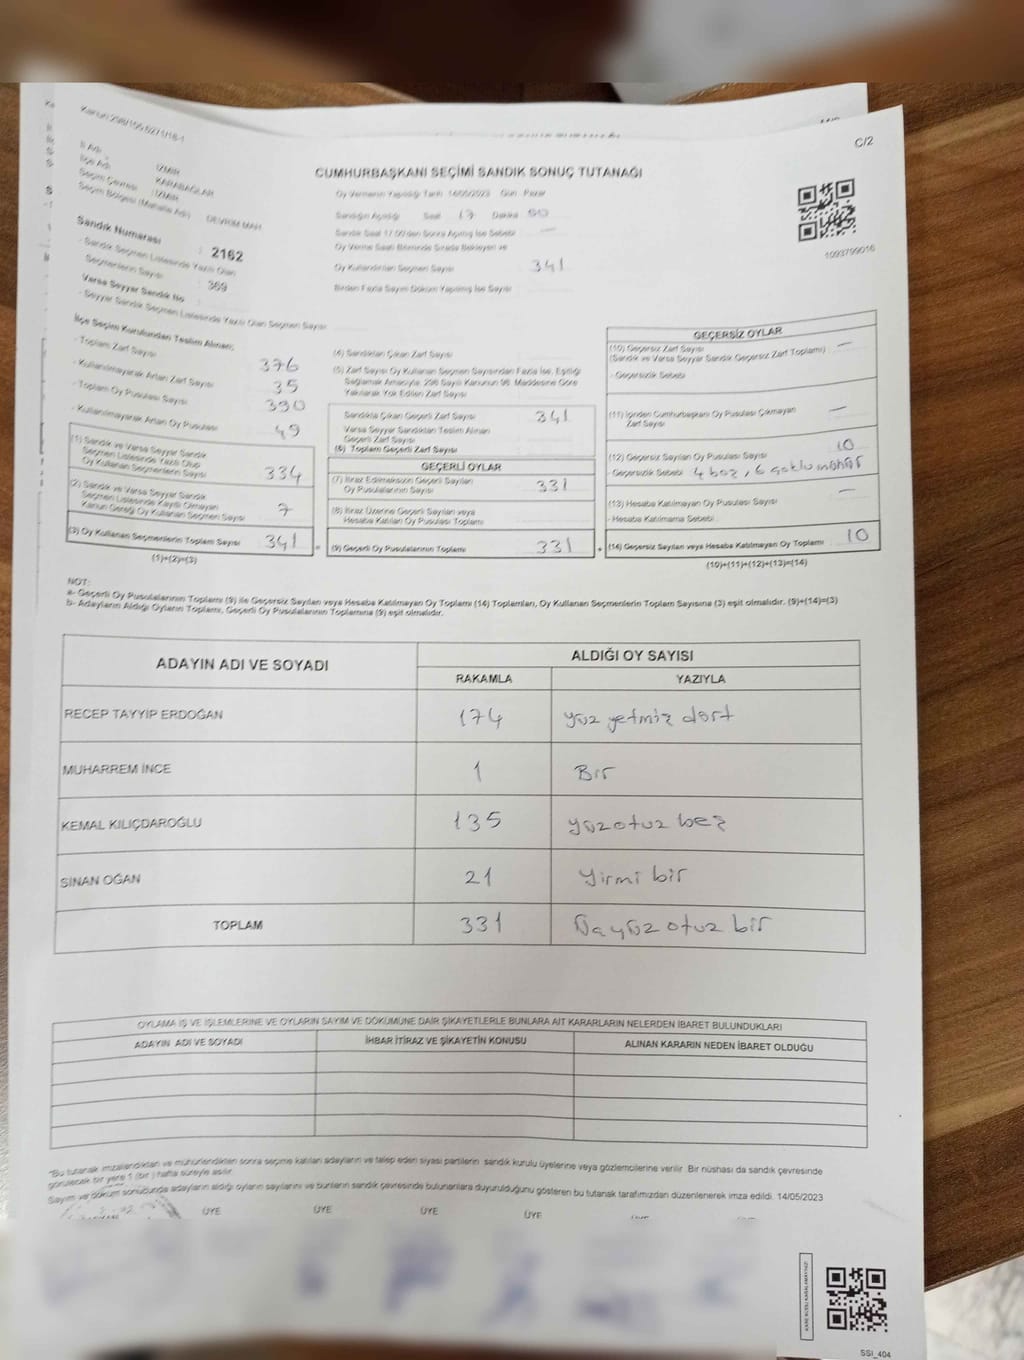 Kanun:298/105,6271/18-1
C/2
İl Adı : İZMİR
İlçe Adı : KARABAĞLAR
Seçim Çevresi : İZMİR
Seçim Bölgesi (Mahalle Adı) : DEVRİM MAH.
CUMHURBAŞKANI SEÇİMİ SANDIK SONUÇ TUTANAĞI
Oy Vermenin Yapıldığı Tarih 14/05/2023 Gün Pazar
Sandığın Açıldığı Saat 17 Dakika 50
Sandık Saat 17.00'den Sonra Açılmış İse Sebebi —
Oy Verme Saati Bitiminde Sırada Bekleyen ve
Oy Kullandırılan Seçmen Sayısı 341
Birden Fazla Sayım Döküm Yapılmış İse Sayısı
1093799016
Sandık Numarası : 2162
- Sandık Seçmen Listesinde Yazılı Olan
Seçmenlerin Sayısı : 369
Varsa Seyyar Sandık No :
- Seyyar Sandık Seçmen Listesinde Yazılı Olan Seçmen Sayısı
İlçe Seçim Kurulundan Teslim Alınan;
- Toplam Zarf Sayısı 376
- Kullanılmayarak Artan Zarf Sayısı 35
- Toplam Oy Pusulası Sayısı 390
- Kullanılmayarak Artan Oy Pusulası 49
(1) Sandık ve Varsa Seyyar Sandık
Seçmen Listesinde Yazılı Olup
Oy Kullanan Seçmenlerin Sayısı 334
(2) Sandık ve Varsa Seyyar Sandık
Seçmen Listesinde Kayıtlı Olmayan
Kanun Gereği Oy Kullanan Seçmen Sayısı 7
(3) Oy Kullanan Seçmenlerin Toplam Sayısı 341
(1)+(2)=(3)
(4) Sandıktan Çıkan Zarf Sayısı
(5) Zarf Sayısı Oy Kullanan Seçmen Sayısından Fazla İse, Eşitliği
Sağlamak Amacıyla, 298 Sayılı Kanunun 98. Maddesine Göre
Yakılarak Yok Edilen Zarf Sayısı
Sandıkta Çıkan Geçerli Zarf Sayısı 341
Varsa Seyyar Sandıktan Teslim Alınan
Geçerli Zarf Sayısı
(6) Toplam Geçerli Zarf Sayısı
GEÇERLİ OYLAR
(7) İtiraz Edilmeksizin Geçerli Sayılan
Oy Pusulalarının Sayısı 331
(8) İtiraz Üzerine Geçerli Sayılan veya
Hesaba Katılan Oy Pusulası Toplamı
= (9) Geçerli Oy Pusulalarının Toplamı 331
GEÇERSİZ OYLAR
(10) Geçersiz Zarf Sayısı —
(Sandık ve Varsa Seyyar Sandık Geçersiz Zarf Toplamı)
- Geçersizlik Sebebi
(11) İçinden Cumhurbaşkanı Oy Pusulası Çıkmayan —
Zarf Sayısı
(12) Geçersiz Sayılan Oy Pusulası Sayısı 10
- Geçersizlik Sebebi 4 boş, 6 çoklu mühür
(13) Hesaba Katılmayan Oy Pusulası Sayısı —
- Hesaba Katılmama Sebebi
+ (14) Geçersiz Sayılan veya Hesaba Katılmayan Oy Toplamı 10
(10)+(11)+(12)+(13)=(14)
NOT:
a- Geçerli Oy Pusulalarının Toplamı (9) ile Geçersiz Sayılan veya Hesaba Katılmayan Oy Toplamı (14) Toplamları, Oy Kullanan Seçmenlerin Toplam Sayısına (3) eşit olmalıdır. (9)+(14)=(3)
b- Adayların Aldığı Oyların Toplamı, Geçerli Oy Pusulalarının Toplamına (9) eşit olmalıdır.
ADAYIN ADI VE SOYADI ALDIĞI OY SAYISI
RAKAMLA YAZIYLA
RECEP TAYYİP ERDOĞAN 174 yüz yetmiş dört
MUHARREM İNCE 1 Bir
KEMAL KILIÇDAROĞLU 135 yüz otuz beş
SİNAN OĞAN 21 Yirmi bir
TOPLAM 331 Üçyüz otuz bir
OYLAMA İŞ VE İŞLEMLERİNE VE OYLARIN SAYIM VE DÖKÜMÜNE DAİR ŞİKAYETLERLE BUNLARA AİT KARARLARIN NELERDEN İBARET BULUNDUKLARI
ADAYIN ADI VE SOYADI İHBAR İTİRAZ VE ŞİKAYETİN KONUSU ALINAN KARARIN NEDEN İBARET OLDUĞU
*Bu tutanak imzalandıktan ve mühürlendikten sonra seçime katılan adayların ve talep eden siyasi partilerin sandık kurulu üyelerine veya gözlemcilerine verilir. Bir nüshası da sandık çevresinde
görülecek bir yere 1 (bir) hafta süreyle asılır.
Sayım ve döküm sonucunda adayların aldığı oyların sayılarını ve bunların sandık çevresinde bulunanlara duyurulduğunu gösteren bu tutanak tarafımızdan düzenlenerek imza edildi. 14/05/2023
ÜYE ÜYE ÜYE ÜYE
SSI_404